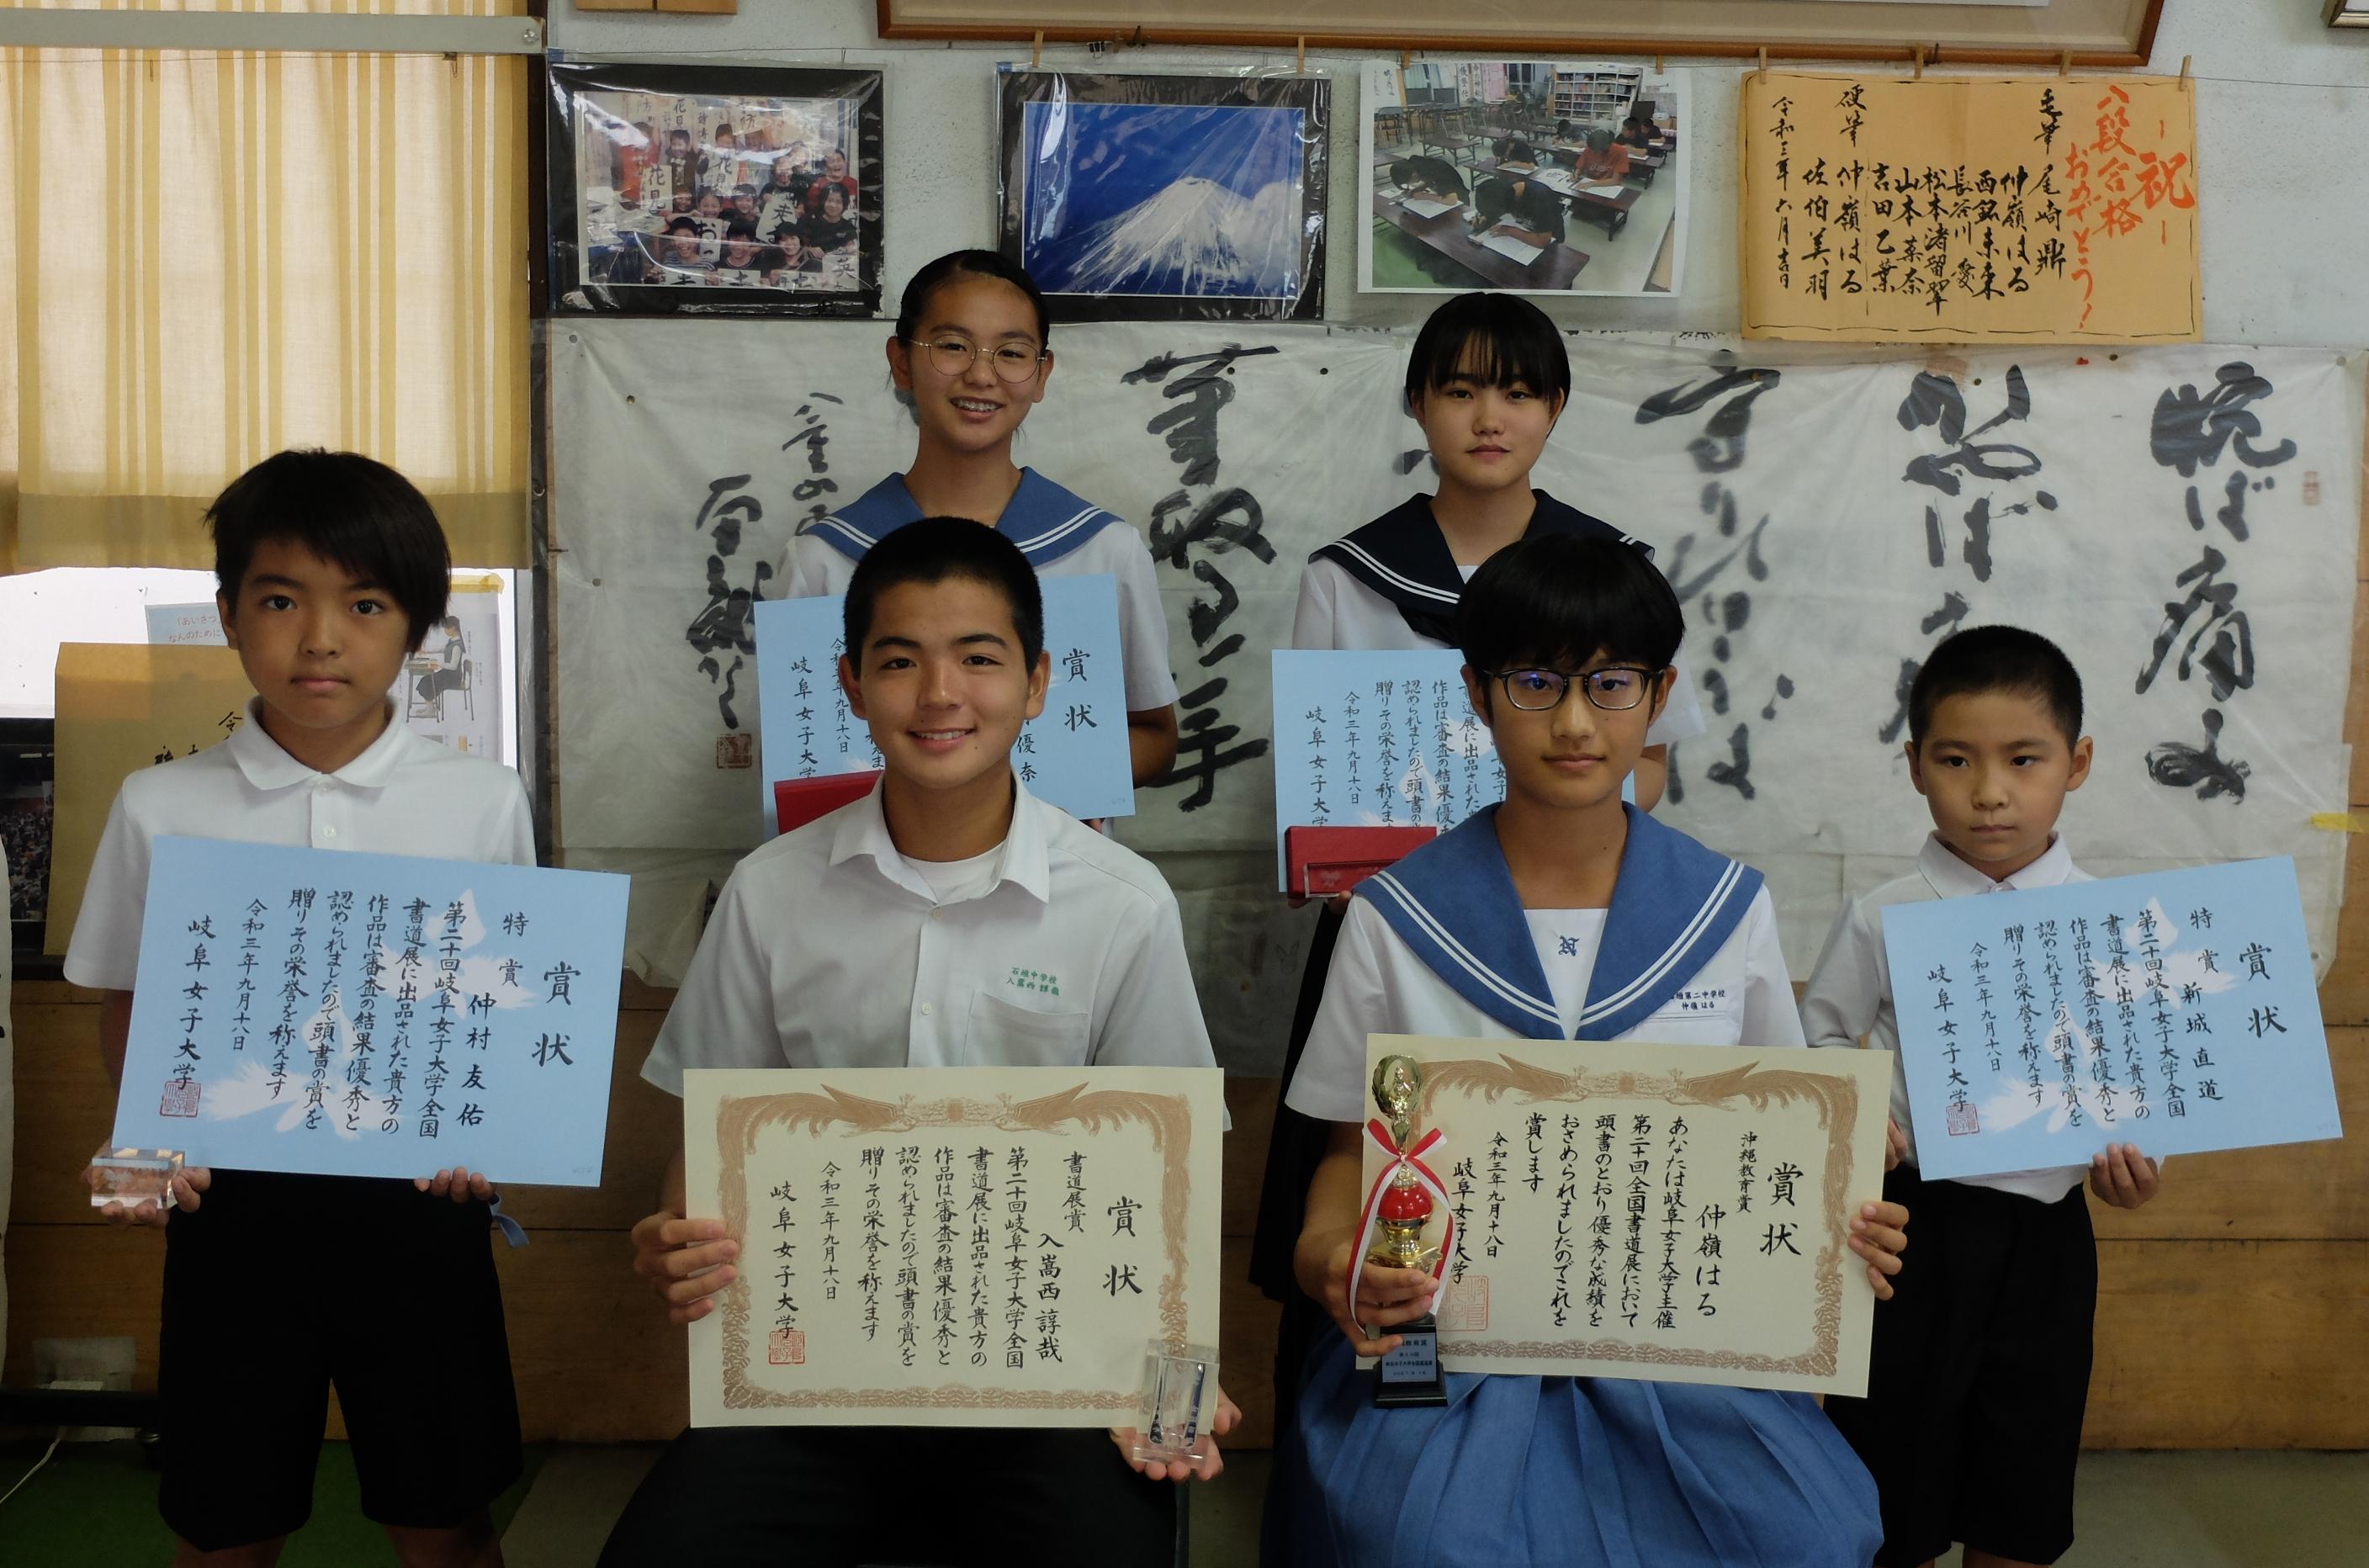 －祝－
八段合格
おめでとう！
毛筆 尾崎鼎
仲嶺はる
西銘未来
長谷川愛
松本渚留翠
山本菜奈
吉田乙葉
硬筆 仲嶺はる
佐伯美羽
令和三年六月吉日
賞状
特賞
仲村友佑
第二十回岐阜女子大学全国
書道展に出品された貴方の
作品は審査の結果優秀と
認められましたので頭書の賞を
贈りその栄誉を称えます
令和三年九月十八日
岐阜女子大学
賞状
優奈
令和三年九月十八日
岐阜女子大学
賞状
書道展賞
入嵩西諄哉
第二十回岐阜女子大学全国
書道展に出品された貴方の
作品は審査の結果優秀と
認められましたので頭書の賞を
贈りその栄誉を称えます
令和三年九月十八日
岐阜女子大学
書道展に出品された
作品は審査の結果優
認められましたので頭書の
贈りその栄誉を称えます
令和三年九月十八日
岐阜女子大
賞状
沖縄教育賞
仲嶺はる
あなたは岐阜女子大学主催
第二十回全国書道展において
頭書のとおり優秀な成績を
おさめられましたのでこれを
賞します
令和三年九月十八日
岐阜女子大学
賞状
特賞
新城直道
第二十回岐阜女子大学全国
書道展に出品された貴方の
作品は審査の結果優秀と
認められましたので頭書の賞を
贈りその栄誉を称えます
令和三年九月十八日
岐阜女子大学
石垣中学校
入嵩西 諄哉
石垣第二中学校
仲嶺 はる
「あいさつ」
なんのために